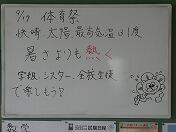 9/17 体育祭
快晴 太陽 最高気温は31度
暑さよりも熱く
学校、シスター、全校生徒
で楽しもう!